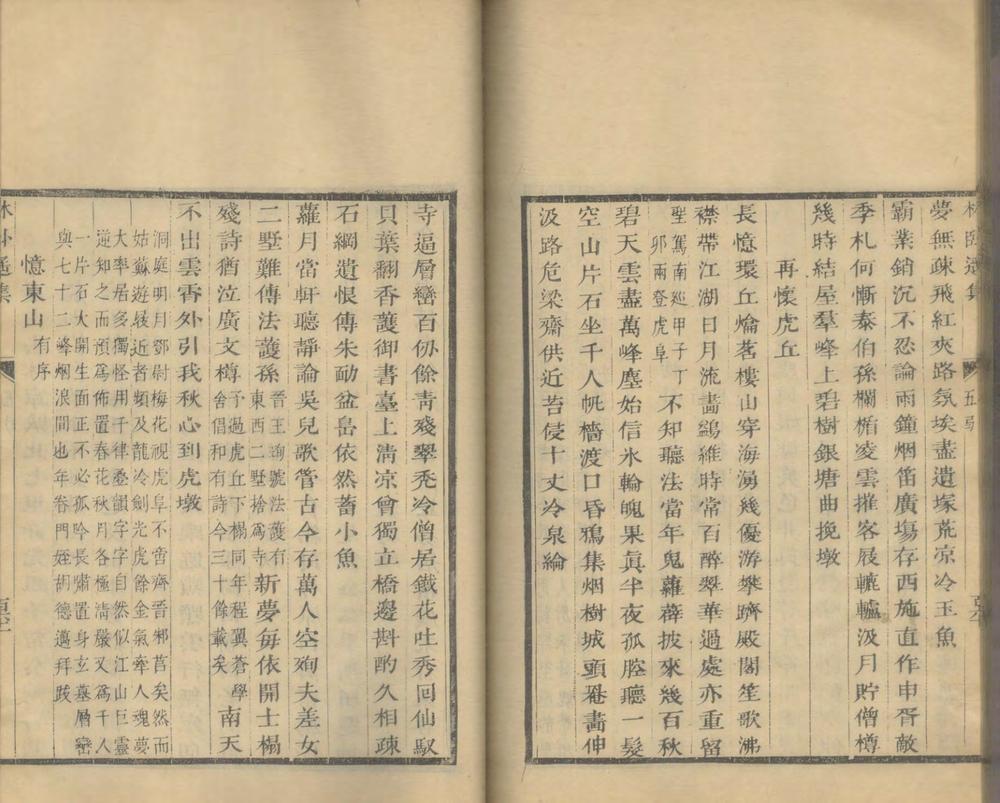 夢無疎飛紅夾路氛埃盡遺塚荒凉冷玉魚
霸業銷沉不忍論雨鐘烟笛廣塲存西施直作申胥敵
季札何慚泰伯孫欄楯凌雲摧客屐轆轤汲月貯僧樽
幾時結屋羣峰上碧樹銀塘曲挽墩
再懷虎丘
長憶環丘爚茗樓山穿海湧幾優游攀躋殿閣笙歌沸
襟帶江湖日月流畵鷁維時常百醉翠華過處亦重留
聖駕南巡甲子丁
卯兩登虎阜
不知聽法當年鬼蘿薜披來幾百秋
碧天雲盡萬峰塵始信氷輪魄果眞半夜孤腔聽一髮
空山片石坐千人帆檣渡口昏鴉集烟樹城頭罨畵伸
汲路危梁齋供近苔侵十丈冷泉綸
寺逼層巒百仞餘靑殘翠禿冷僧居鐵花吐秀囘仙馭
貝葉翻香護御書臺上淸凉曾獨立橋邊斟酌久相疎
石綱遺恨傳朱勔盆岳依然蓄小魚
蘿月當軒聽靜論吳兒歌管古今存萬人空殉夫差女
二墅難傳法護孫
晋王珣號法護有
東西二墅捨爲寺
新夢每依開士榻
殘詩猶泣廣文樽
予過虎丘下榻同年程翼蒼學
舍倡和有詩今三十餘載矣
南天
不出雲霄外引我秋心到虎墩
洞庭明月鄧尉梅花視虎阜不啻齊晋邾莒矣然而
姑蘇遊屐近者類及龍冷劍光虎餘金氣牽人魂夢
大率居多獨怪用千律壘韻字字自然似江山巨靈
逆知之而預爲佈置春花秋月各極淸嚴又為千人
一片石大開生面正不必孤吟長嘯置身玄墓層巒
與七十二峰烟浪間也年眷門姪胡德邁拜跋
憶東山
有序